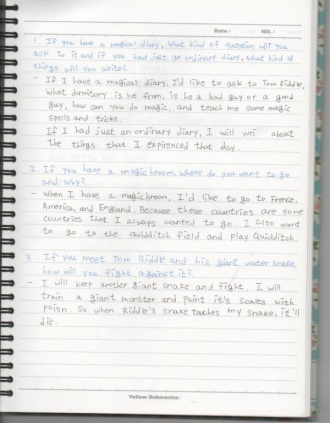 Date / NO. /
1. If you have a magical diary, what kind of question will you
ask to it and if you had just an ordinary diary, what kind of
things will you write?
- If I have a magical diary, I'd like to ask to Tom Riddle,
what dormitory is he from, is he a bad guy or a good
guy, how can you do magic, and teach me some magic
spells and tricks.
If I had just an ordinary diary, I will wri about
the things that I expirenced that day.
2. If you have a magic broom, where do you want to go
and why?
- When I have a magic broom, I'd like to go to France,
America, and England. Because these countries are some
countries that I always wanted to go. I also want
to go to the quidditch field and play Quidditch.
3. If you meet Tom Riddle and his giant water snake,
how will you fight against it?
- I will keep another giant snake and fight. I will
train a giant monster and paint it's scales with
So when Riddle's snake touches my snake, it'll
die.
Yellow Submarine